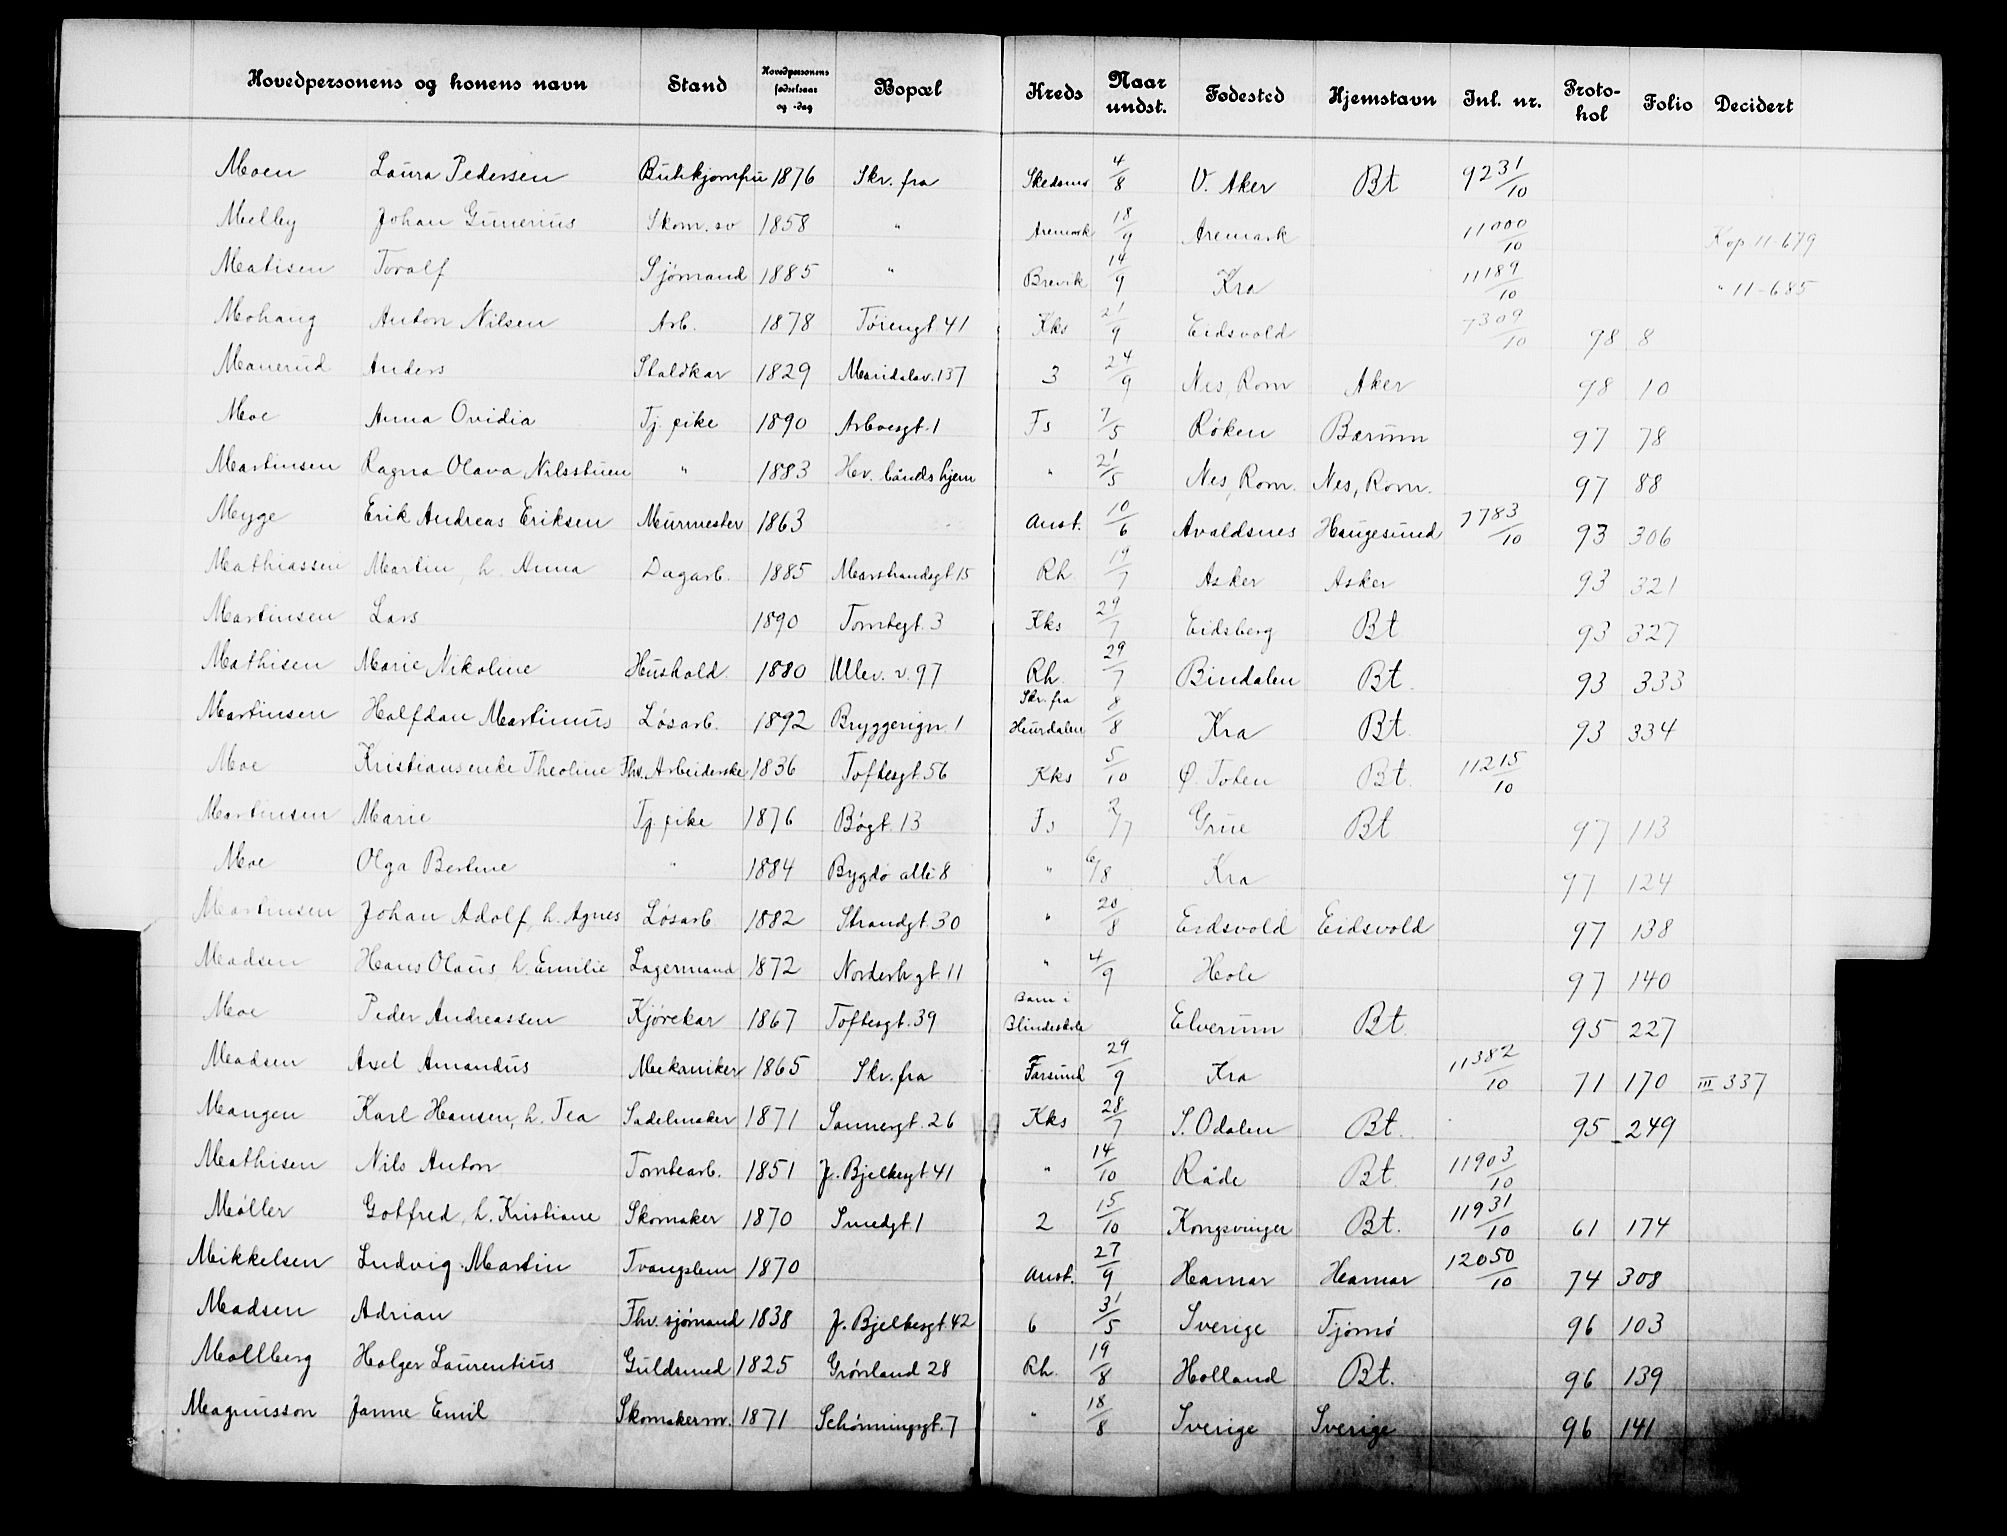 Hovedpersonens og konens navn Stand Hovedpersonens fødselsaar og -dag Bopæl Kreds Naar undst. Fødested Hjemstavn Inl. nr. Protokol Folio Decidert
Moen Laura Pedersen Butikjomfru 1876 Skr. fra Skedsmo 4/8 V. Aker Bt 9231/10
Melby Johan Gunerius Skom. sv 1858 " Aremark 18/9 Aremark 11000/10 Kop 11-679
Matisen Toralf Sjømand 1885 " Brevik 14/9 Kra 11189/10 " 11-685
Mohaug Anton Nilsen Arb. 1878 Tøiengt 41 Kks 21/9 Eidsvold 7309/10 98 8
Manerud Anders Staldkar 1829 Maridalsv. 137 3 24/9 Nes, Rom Aker 98 10
Moe Anna Ovidia Tj. pike 1890 Arboesgt. 1 Fs 7/5 Røken Bærum 97 78
Martinsen Ragna Olava Nilsstuen " 1883 Hv. bånds hjem " 21/5 Nes, Rom. Nes, Rom. 97 88
Myge Erik Andreas Eriksen Murmester 1863 Anst. 10/6 Avaldsnes Haugesund 7783/10 93 306
Mathiassen Martin, h. Anna Dagarb. 1885 Marstrandsgt 15 Rh. 19/7 Asker Asker 93 321
Martinsen Lars 1890 Tomtegt. 3 Kks 29/7 Eidsberg Bt 93 327
Mathisen Marie Nikoline Hushold. 1880 Ullev. v. 97 Rh. 29/7 Bindalen Bt. 93 333
Martinsen Halfdan Martinius Løsarb. 1892 Bryggerign. 1 Skr. fra Hurdalen 8/8 Kra Bt. 93 334
Moe Kristiansenke Theoline Fhv. Arbeiderske 1836 Toftesgt 56 Kks 5/10 Ø. Toten Bt. 11215/10
Martinsen Marie Tj. pike 1876 Bøgt. 13 Fs 2/7 Grue Bt 97 113
Moe Olga Bertine " 1884 Bygdø allé 8 " 6/8 Kra 97 124
Martinsen Johan Adolf, h. Agnes Løsarb. 1882 Strandgt. 30 " 20/8 Eidsvold Eidsvold 97 138
Madsen Hans Olaus h. Emilie Lagermand 1872 Norderh gt. 11 " 4/9 Hole 97 140
Moe Peder Andreassen Kjørekar 1867 Toftesgt. 39 Barn i Blindeskole Elverum Bt. 95 227
Madsen Axel Amandus Mekaniker 1865 Skr. fra Farsund 29/9 Kra 11382/10 71 170 III 337
Mangen Karl Hansen, h. Tea Sadelmaker 1871 Sannergt. 26 Kks 28/7 S. Odalen Bt. 95 249
Mathisen Nils Anton Tomtearb. 1851 J. Bjelkesgt 41 " 14/10 Råde Bt. 11903/10
Møller Gotfred, h. Kristiane Skomaker 1870 Smedgt. 1 2 15/10 Kongsvinger Bt. 11931/10 61 174
Mikkelsen Ludvig Martin Tvangslem 1870 Anst. 27/9 Hamar Hamar 12050/10 74 308
Madsen Adrian Fhv. sjømand 1838 J. Bjelkesgt. 42 6 31/5 Sverige Tjømø 96 103
Mollberg Holger Laurentius Guldsmed 1825 Grønland 28 Rh. 19/8 Holland Bt. 96 139
Magnusson Janne Emil Skomakersv. 1871 Schønningsgt. 7 " 18/8 Sverige Sverige 96 141